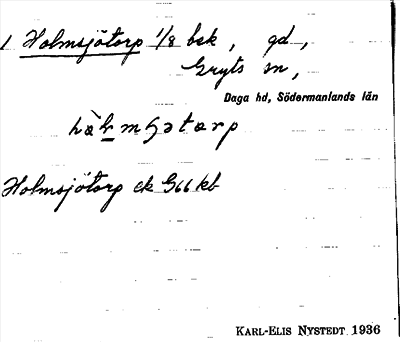 1 Holmsjötorp 1/8 bsk, gd,
Gryts sn,
Daga hd, Södermanlands län
Holmsjötorp ek G66 kb
KARL-ELIS NYSTEDT 1936